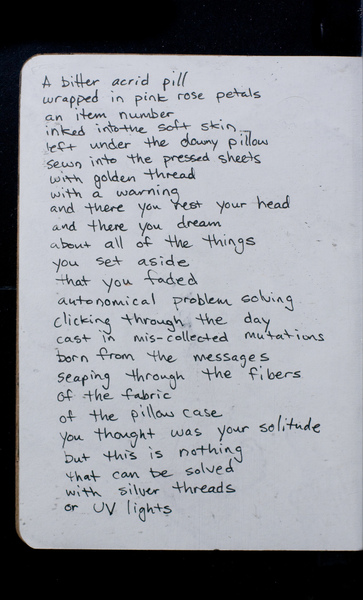 A bitter acrid pill
wrapped in pink rose petals
an item number
inked into the soft skin
left under the downy pillow
sewn into the pressed sheets
with golden thread
with a warning
and there you rest your head
and there you dream
about all of the things
you set aside
that you faded
autonomical problem solving
clicking through the day
cast in mis-collected mutations
born from the messages
seaping through the fibers
of the fabric
of the pillow case
you thought was your solitude
but this is nothing
that can be solved
with silver threads
or UV lights